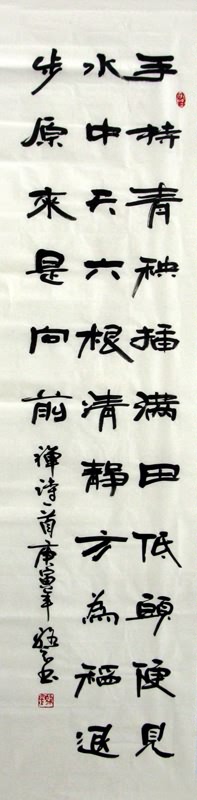 手持青秧插满田低頭便見
水中天六根清静方為稻退
步原來是向前
禅诗一首庚寅年